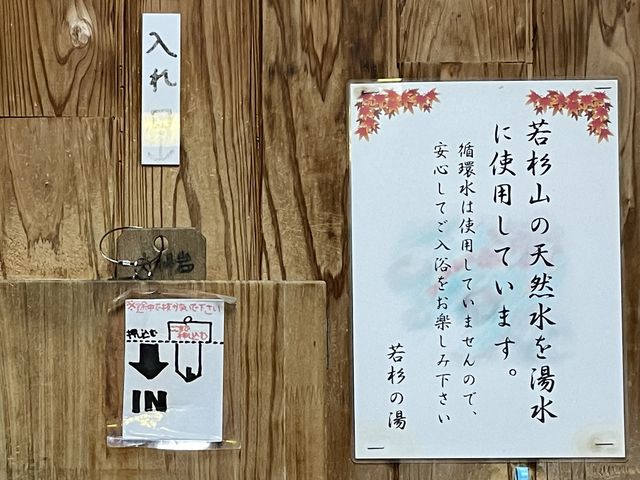 若杉山の天然水を湯水
に使用しています。
循環水は使用していませんので、
安心してご入浴をお楽しみ下さい
若杉の湯
入れ口
※途中で抜かないで下さい
押し込む
ここまで
押し込む
IN